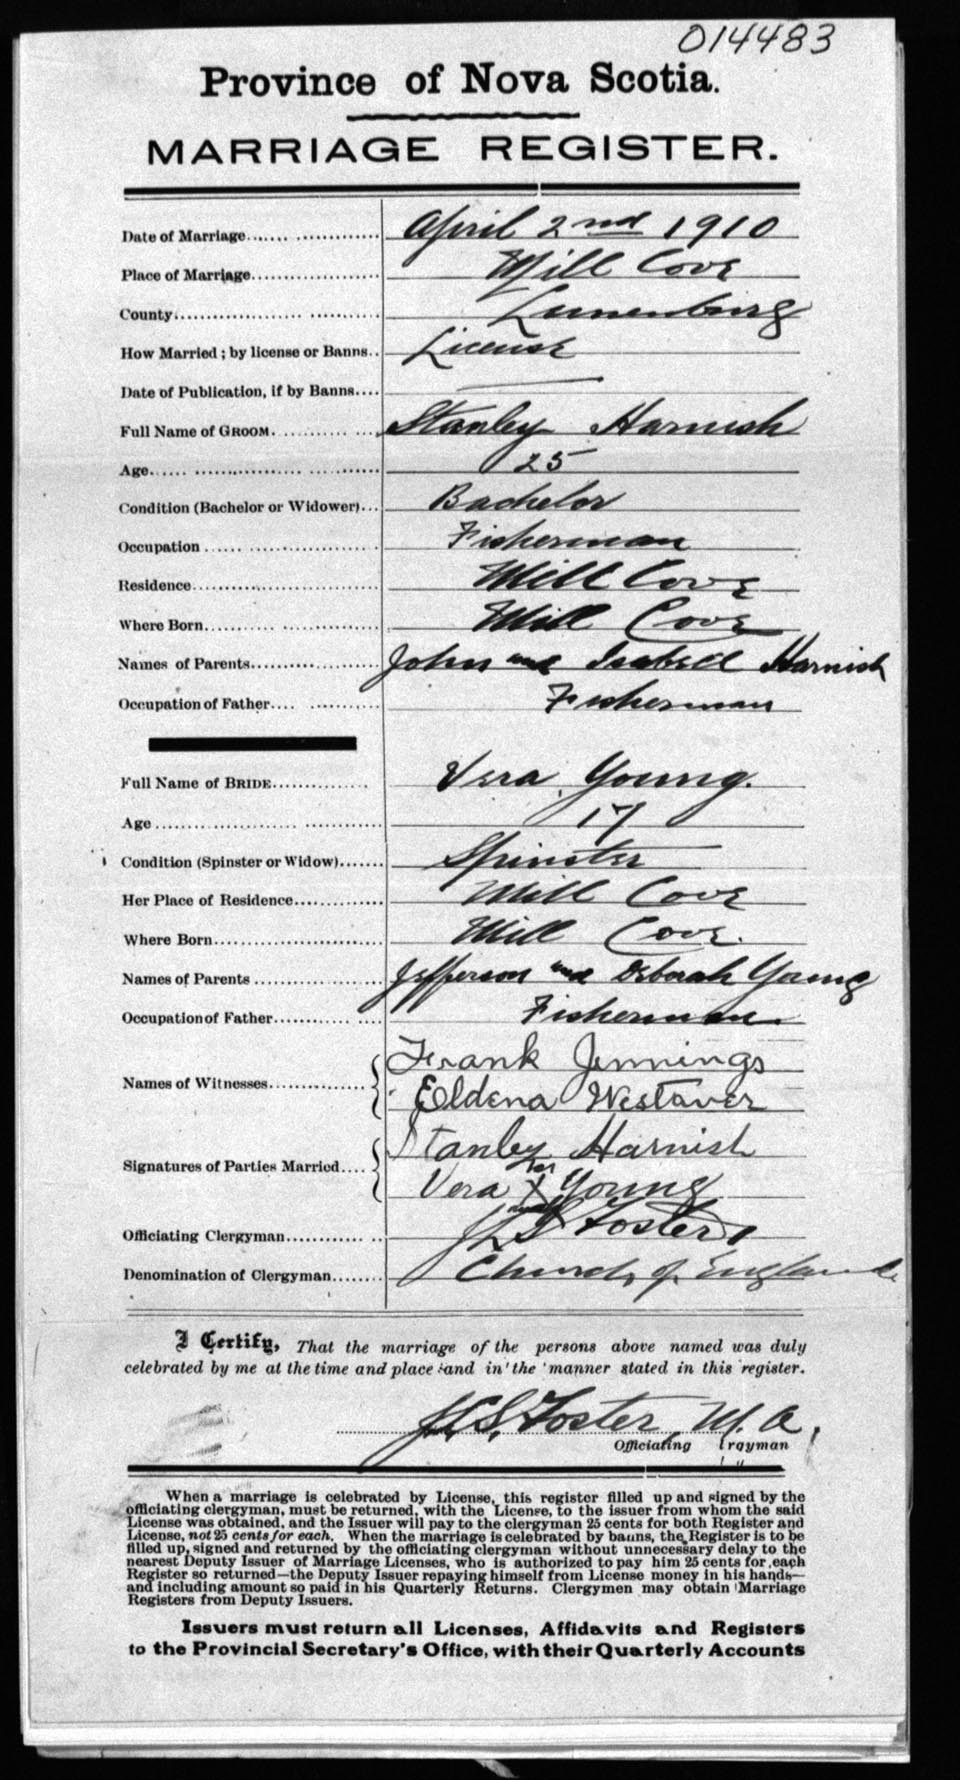 014483
Province of Nova Scotia.
MARRIAGE REGISTER.
Date of Marriage April 2nd 1910
Place of Marriage Mill Cove
County Lunenburg
How Married; by license or Banns License
Date of Publication, if by Banns
Full Name of GROOM Stanley Harnish
Age 25
Condition (Bachelor or Widower) Bachelor
Occupation Fisherman
Residence Mill Cove
Where Born Mill Cove
Names of Parents John and Isabell Harnish
Occupation of Father Fisherman
Full Name of BRIDE Vera Young.
Age 17
Condition (Spinster or Widow) Spinster
Her Place of Residence Mill Cove
Where Born Mill Cove.
Names of Parents Jefferson and Deborah Young
Occupation of Father Fisherman.
Frank Jennings
Names of Witnesses
Eldena Westaver
Stanley Harnish
Signatures of Parties Married
her
Vera X Young
mark
Officiating Clergyman Foster
Denomination of Clergyman Church of England
I Certify, That the marriage of the persons above named was duly
celebrated by me at the time and place and in the manner stated in this register.
Foster M. A.
Officiating lrgyman
When a marriage is celebrated by License, this register filled up and signed by the
officiating clergyman, must be returned, with the License, to the issuer from whom the said
License was obtained, and the Issuer will pay to the clergyman 25 cents for both Register and
License, not 25 cents for each. When the marriage is celebrated by banns, the Register is to be
filled up, signed and returned by the officiating clergyman without unnecessary delay to the
nearest Deputy Issuer of Marriage Licenses, who is authorized to pay him 25 cents for each
Register so returned—the Deputy Issuer repaying himself from License money in his hands—
and including amount so paid in his Quarterly Returns. Clergymen may obtain Marriage
Registers from Deputy Issuers.
Issuers must return all Licenses, Affidavits and Registers
to the Provincial Secretary's Office, with their Quarterly Accounts